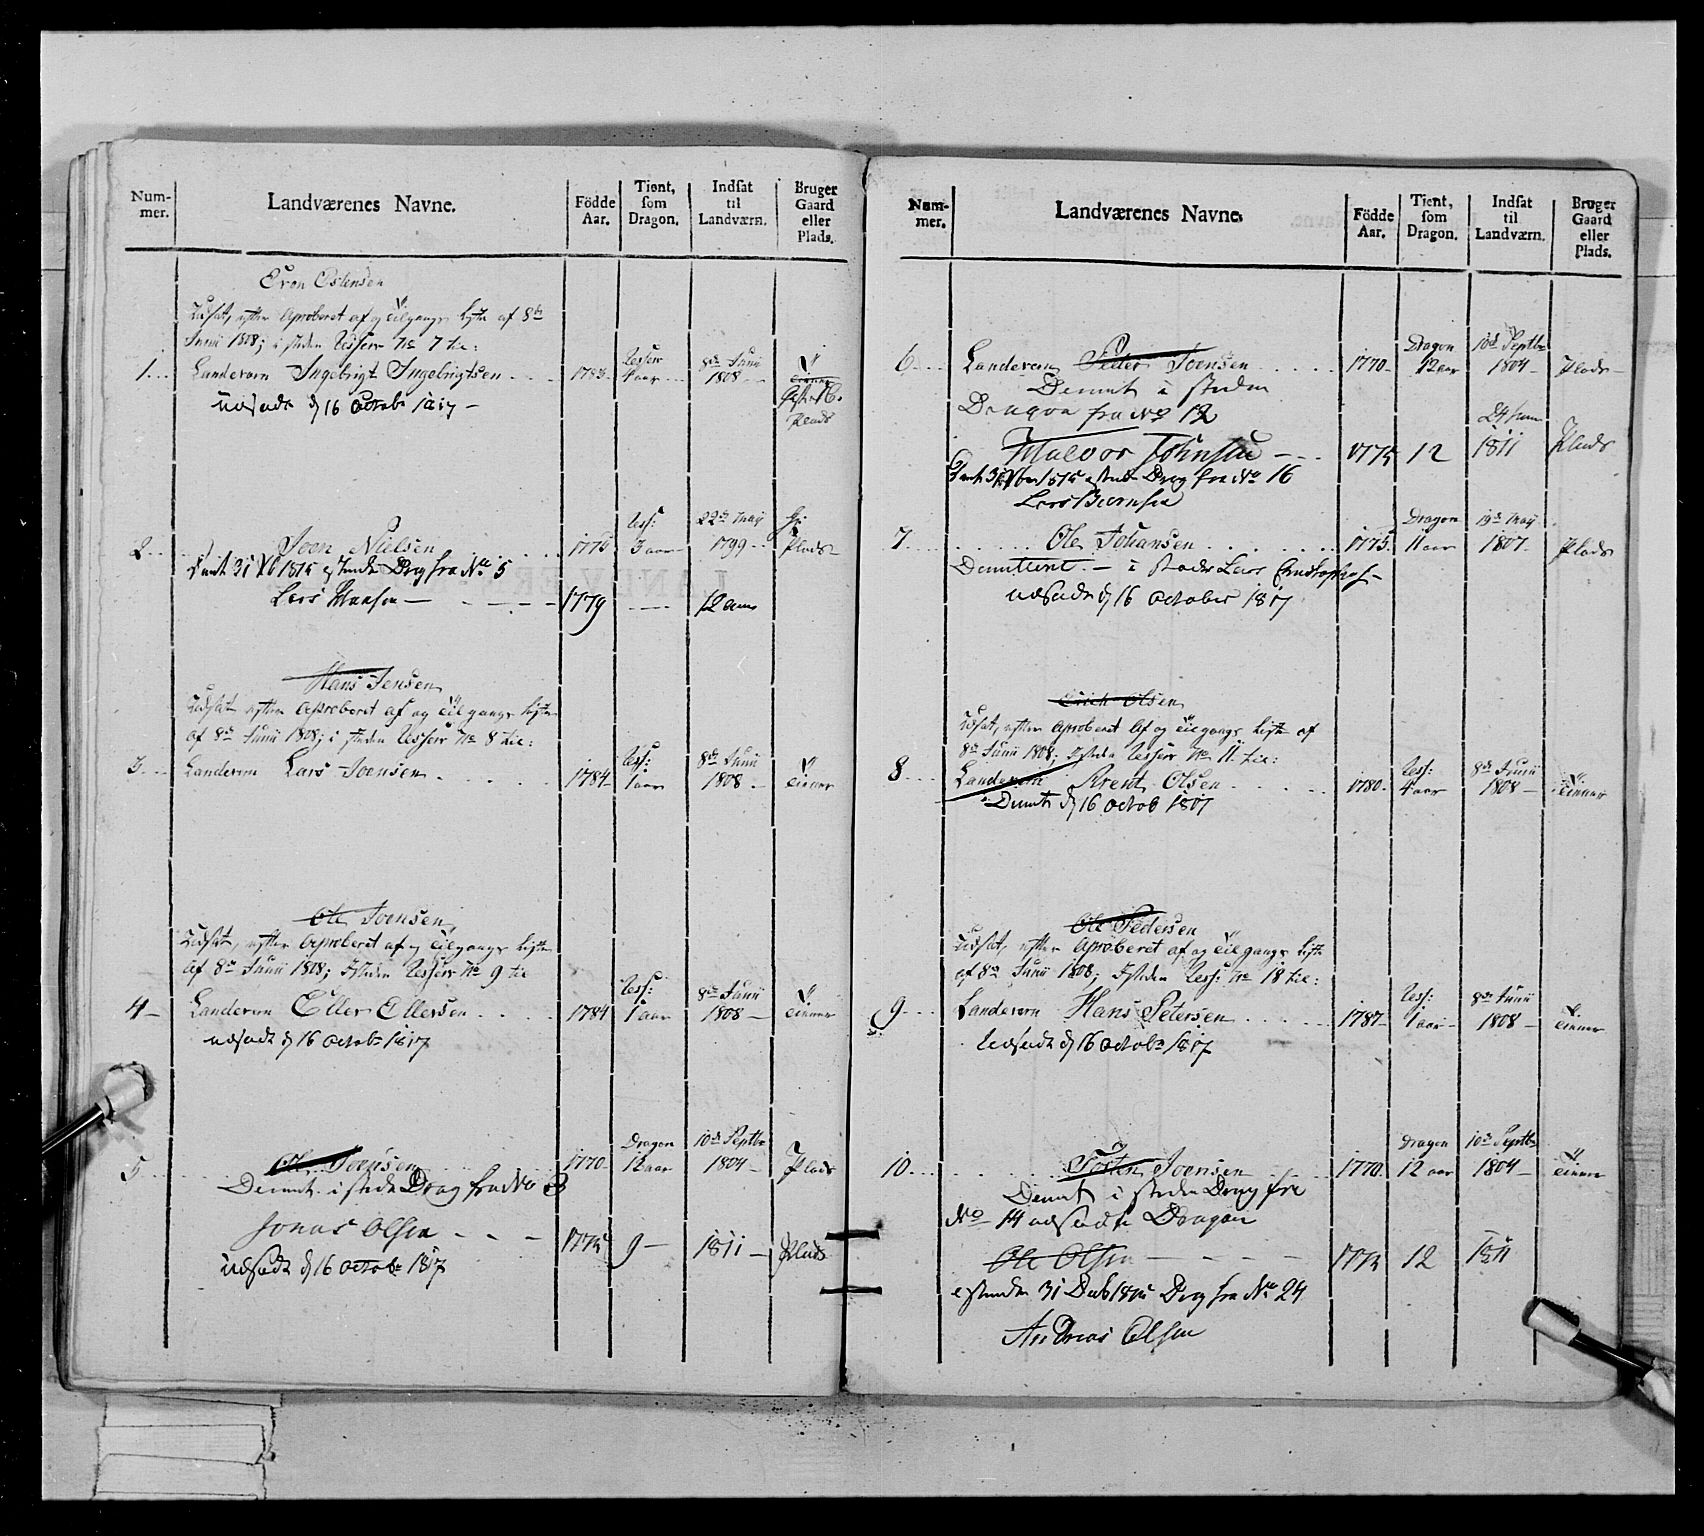 Num-
mer.
Landværenes Navne.
Födde
Aar.
Tient,
som
Dragon.
Indsat
til
Landværn.
Bruger
Gaard
eller
Plads.
Even Estensen
Udsat, efter Aproberet af og Tilgangs Liste af 8de
Junii 1808; i steden Reserv No 7 til:
1. Landevern Ingebrigt Ingebrigtsen
Reserv
4 aar
8de Junii
1808
Plads
udsadt d 16 octobr 1817
2 Joen Nielsen 1775
Res:
3 aar
22de May
1799
Plads
31 1815 i stæde Drag fra No 5
Lars 1779
12
Hans Jensen
Udsat efter Aproberet af og Tilgangs Liste
af 8de Junii 1808; i steden Reserv No 8 til:
3 Landevern Lars Joensen 1784
Res:
1 aar
8de Junii
1808
Ole Joensen
Udsat, efter Aproberet af og Tilgangs Liste
af 8de Junii 1808; Isteden Reserv No 9 til
4 Landevern Eller Ellersen 1784
Res:
1 aar
8de Junii
1808
udsadt d 16 octobr 1817
5 Ole Joensen 1770
Dragon
12 aar
10de Septbr
1804
Plads
Demt. i stede Drag fra No 3
Jonas Olsen 1775 9 1811 Plads
udsadt d 16 octobr 1817
Num-
mer.
Landværenes Navne.
Födde
Aar.
Tient,
som
Dragon.
Indsat
til
Landværn.
Bruger
Gaard
eller
Plads.
6 Landevern Peder Joensen 1770
Dragon
12 aar
10de Septbr
1804
Plads
Demt i steden
Dragon fra No 12
Halvor Johnsen 1775 12
24 Juni
1811
Plads
1815 i stede Drag fra No 16
Lars Biørnsen
7 Ole Johansen 1775
Dragon
11 aar
19de May
1807
Plads
Demitteret i stade Lars
udsadt d 16 october 1817
Erich Olsen
Udsat, efter Aproberet Af og Tilgangs Liste af
8de Junii 1808; Isteden Reserv No 11 til:
8 Landevern Arent Olsen 1780
Res:
4 aar
8de Junii
1808
Demt d 16 octob 1817
Ole Pedersen
Udsat, efter Aproberet af og Tilgangs Liste
af 8de Junii 1808; Isteden Res: No 18 til:
9 Landevern Hans Petersen 1787
Res:
1 aar
8de Junii
1808
Udsadt d 16 octobr 1817
10 Tosten Joensen 1770
Dragon
12 aar
10de Septbr
1804
Demt i steden Drag fra
No 14 udsadte Dragon
Ole Olsen 1775 12 1811
i steden 31 Decb 1815 Drag fra No 24
Andreas Olsen